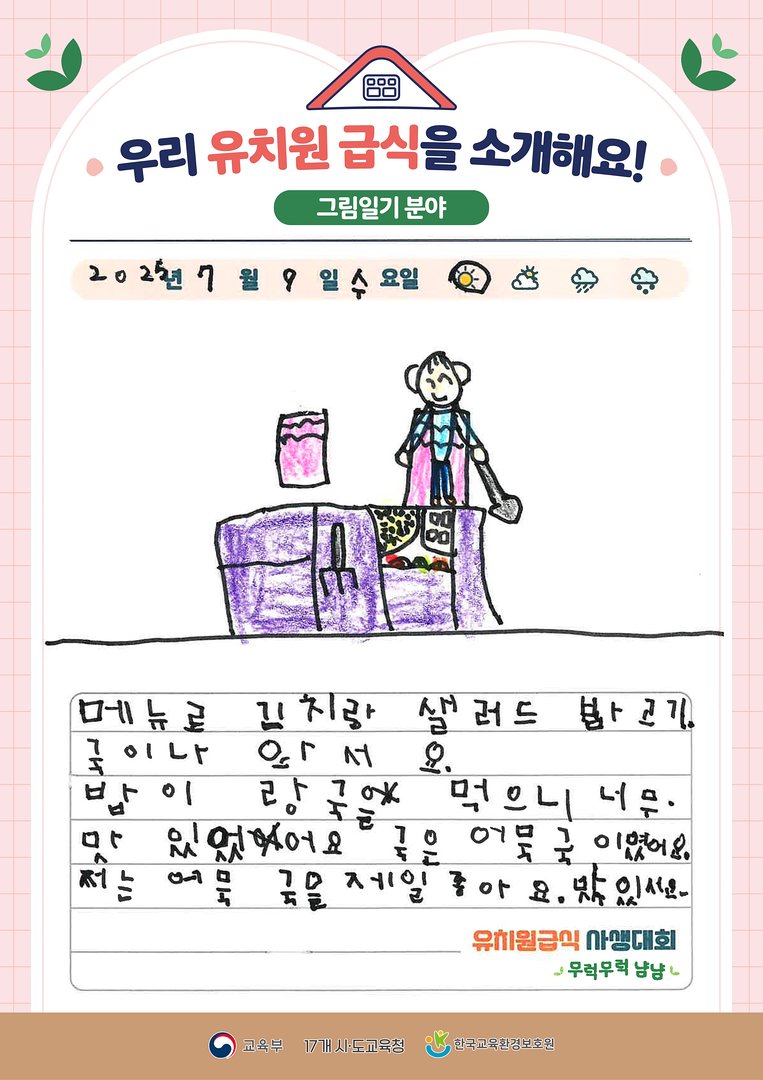 우리 유치원 급식을 소개해요!
그림일기 분야
2025년 7월 9일 수요일
메뉴로 김치랑 샐러드 밥 고기.
국이나 와서 요.
밥이 랑 국을 먹으니 너무.
맛 있었어요 국은 어묵국 이였어요.
저는 어묵 국을 제일 좋아요. 맛있서요.
유치원급식 사생대회
무럭무럭 냠냠
교육부 17개 시·도교육청 한국교육환경보호원